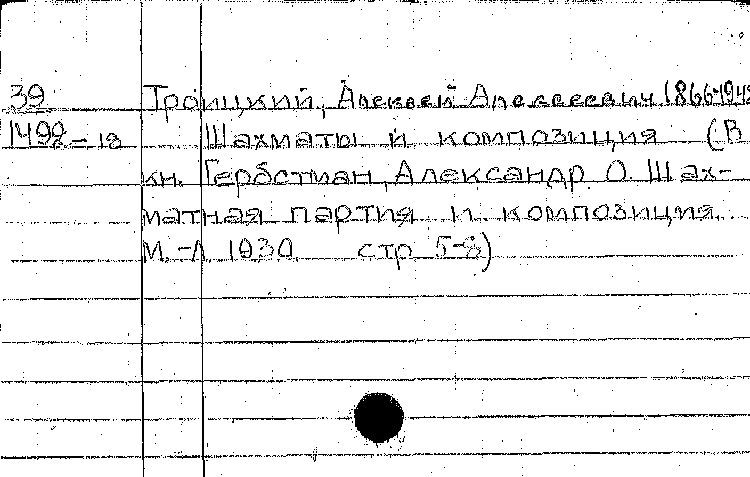 39 Троицкий, Алексей Алексеевич (1866-1942
1498-18 Шахматы и композиция (В
кн. Гербстман, Александр О. Шах-
матная партия и композиция.
М.-Л. 1930 стр 5-8)